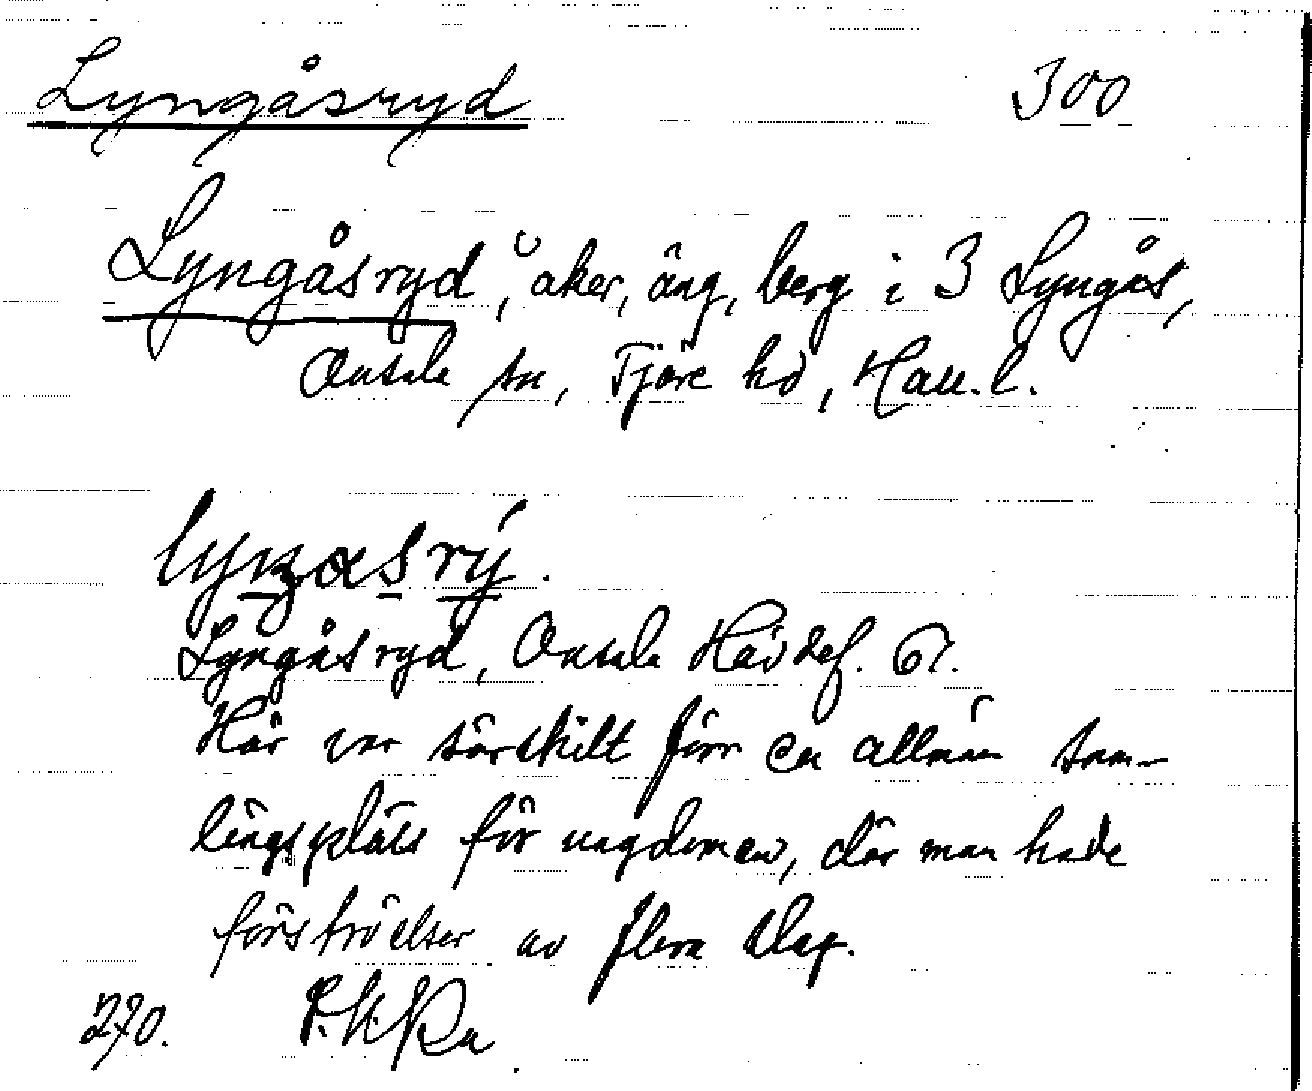 Lyngåsryd 300
Lyngåsryd, åker, äng, berg i 3 Lyngås,
Onsala sn, Fjäre hd, Hall. l.
Lyngåsryd, Onsala Hävdef. 67.
Här var särskilt förr en allmän sam-
lingsplats för ungdomen, där man hade
förströelser av flera slag.
270.